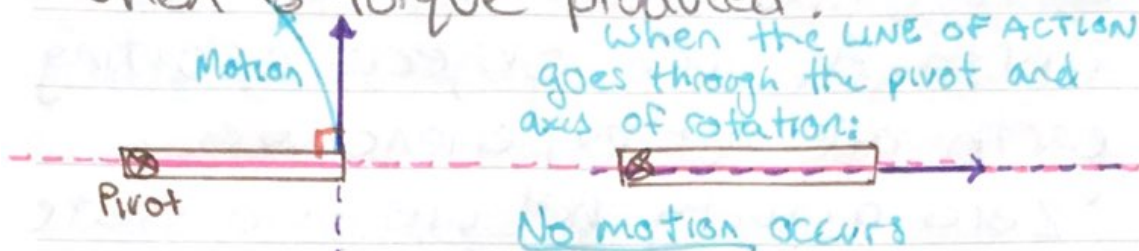 when is torque produced?
when the LINE OF ACTION
Motion
goes through the pivot and
axis of rotation:
Pivot
No motion occurs